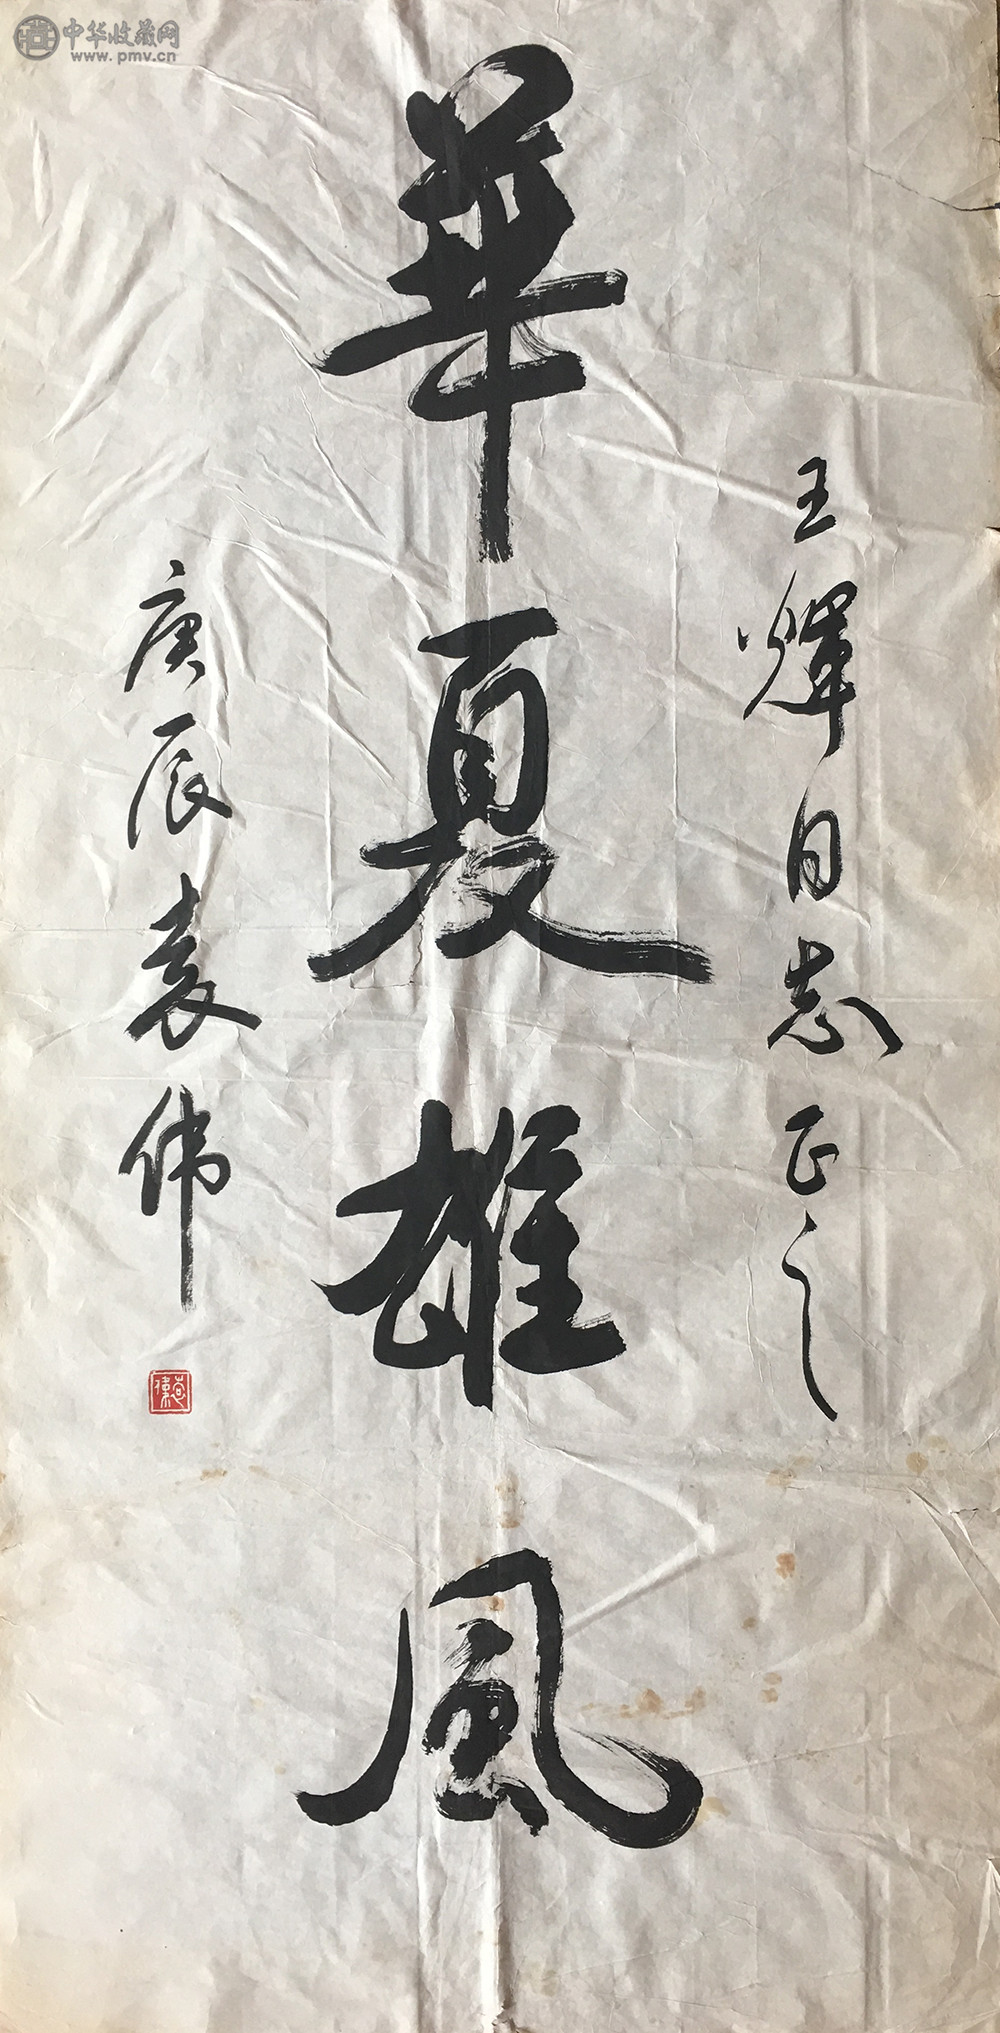 中华收藏网
www.pmv.cn
王輝同志正之
華夏雄風
庚辰袁伟